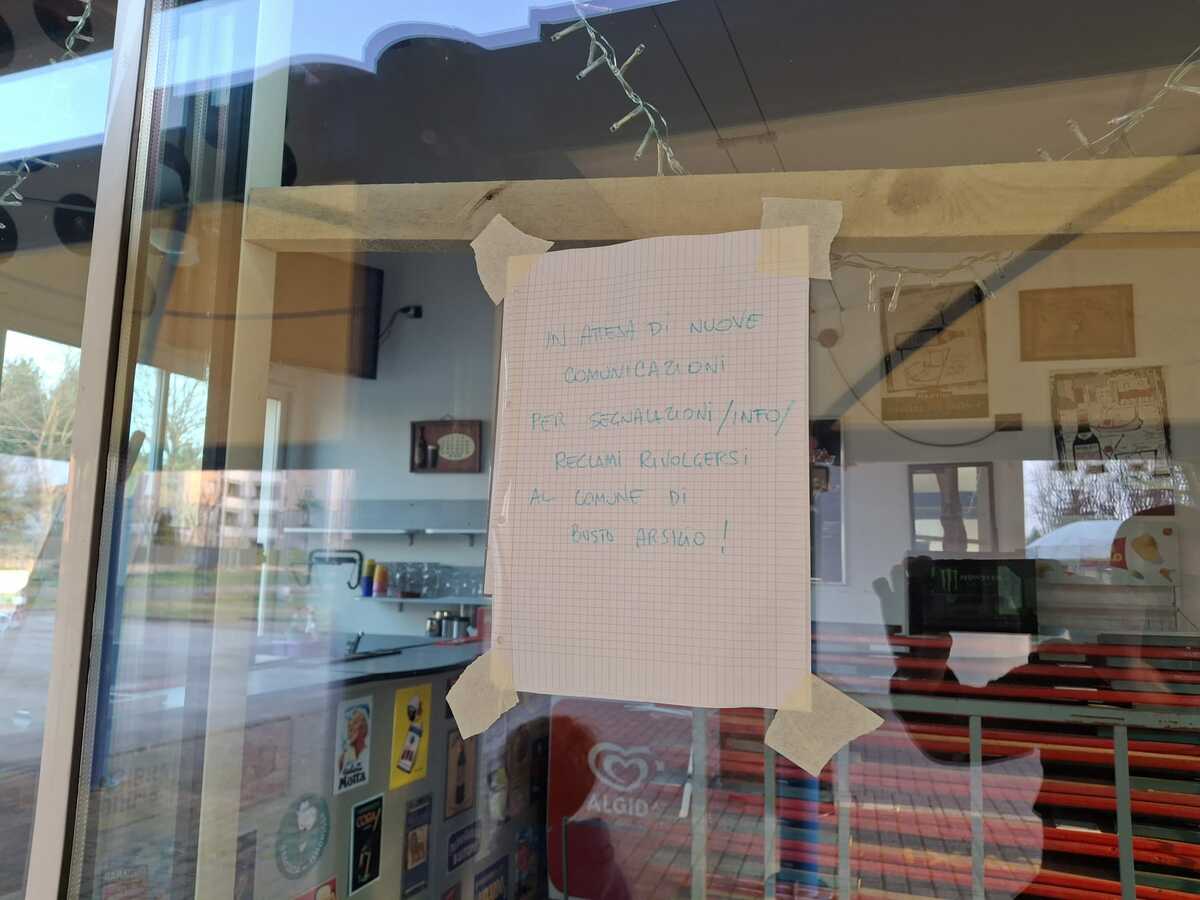 IN ATTESA DI NUOVE
COMUNICAZIONI
PER SEGNALAZIONI/INFO/
RECLAMI RIVOLGERSI
AL COMUNE DI
BUSTO ARSIZIO!
MONSTER
Motta
CORA
ALGIDA